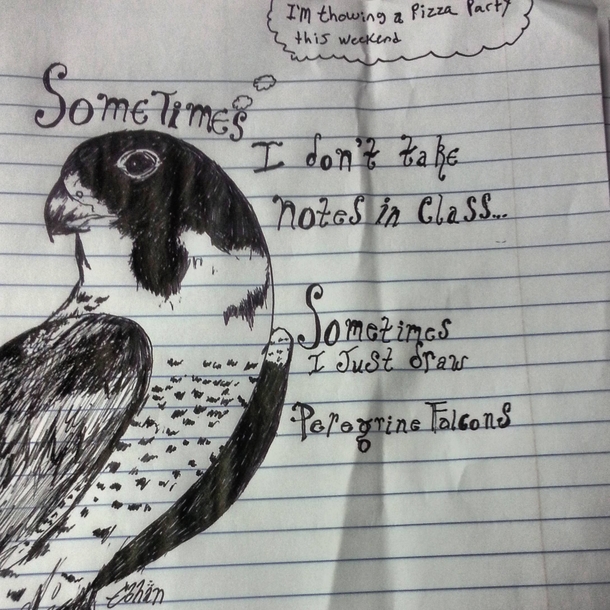 I'm thowing a Pizza Party
this weekend
Sometimes
I don't take
notes in class...
Sometimes
I Just draw
Peregrine Falcons